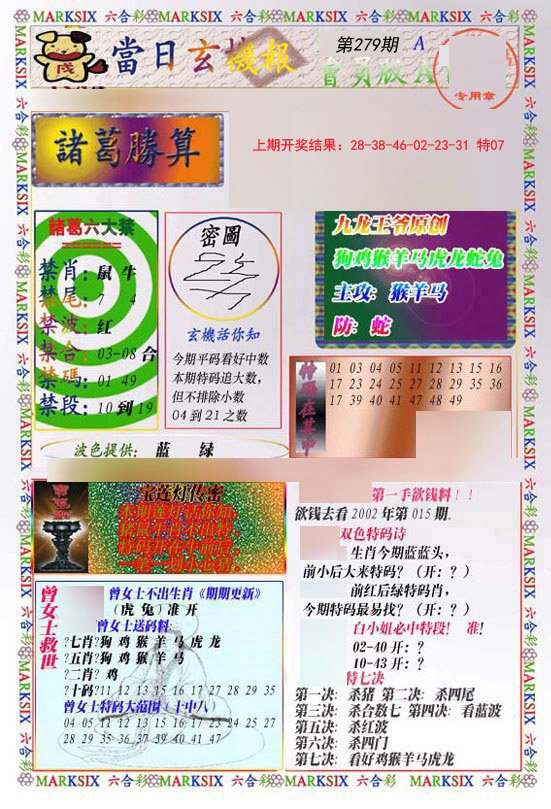 MARKSIX 六合彩 MARKSIX 六合彩 MARKSIX 六合彩 MARKSIX 六合彩 MARKSIX 六合彩
當日玄機報
第279期 A
會員版A
专用章
諸葛勝算
上期开奖结果：28-38-46-02-23-31 特07
諸葛六大禁
禁肖：鼠 牛
禁尾：7 4
禁波：红
禁合：03-08 合
禁碼：01 49
禁段：10 到 19
密圖
玄機話你知
今期平码看好中数
本期特码追大数，
但不排除小数
04 到 21 之数
波色提供： 蓝 绿
九龙王爷原创
狗鸡猴羊马虎龙蛇兔
主攻：猴羊马
防：蛇
特码在其中
01 03 04 05 11 12 13 15 16
17 23 24 25 27 28 29 35 36
17 39 40 41 47 48 49
宝莲灯传密
曾女士救世
曾女士不出生肖《期期更新》
（虎 兔）准 开
曾女士送码料
?七肖?狗 鸡 猴 羊 马 虎 龙
?五肖?狗 鸡 猴 羊 马
?二肖? 鸡
?十码?11 12 13 15 16 17 27 28 29 35
曾女士特码大范围（十中八）
04 05 11 12 13 15 16 17 23 24 25 27
28 29 35 36 37 39 40 41 47
第一手欲钱料！！
欲钱去看 2002 年第 015 期.
双色特码诗
生肖今期蓝蓝头，
前小后大来特码？（开：？）
前红后绿特码肖，
今期特码最易找？（开：？）
白小姐必中特段！ 准!
02-40 开：？
10-43 开：？
特七决
第一决：杀猪 第二决：杀四尾
第三决：杀合数七 第四决：看蓝波
第五决：杀红波
第六决：杀四门
第七决：看好鸡猴羊马虎龙
MARKSIX 六合彩 MARKSIX 六合彩 MARKSIX 六合彩 MARKSIX 六合彩 MARKSIX 六合彩